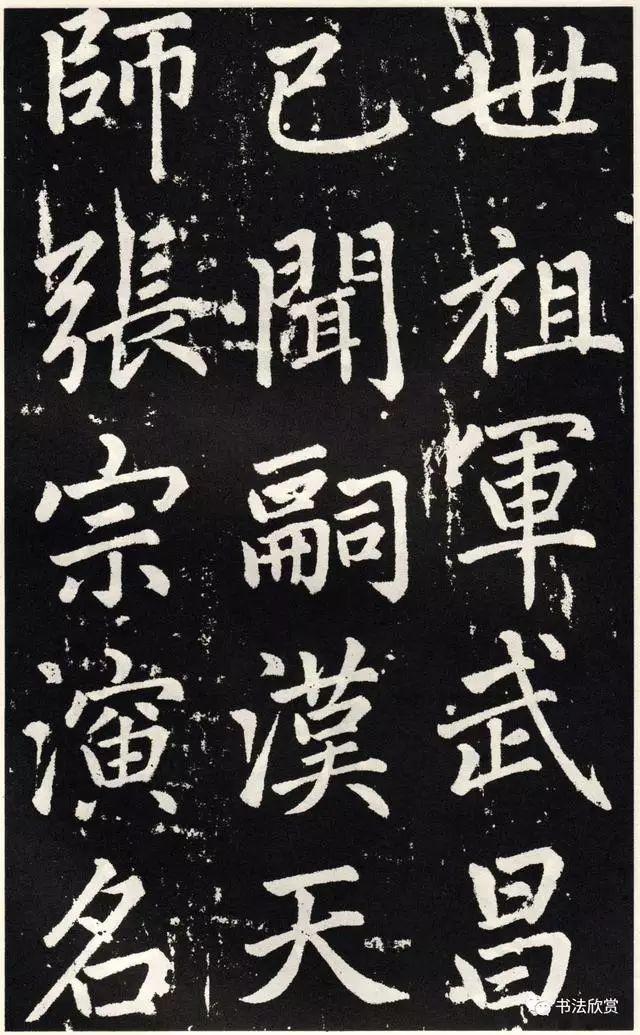 世祖軍武昌
已聞嗣漢天
師張宗演名
书法欣赏